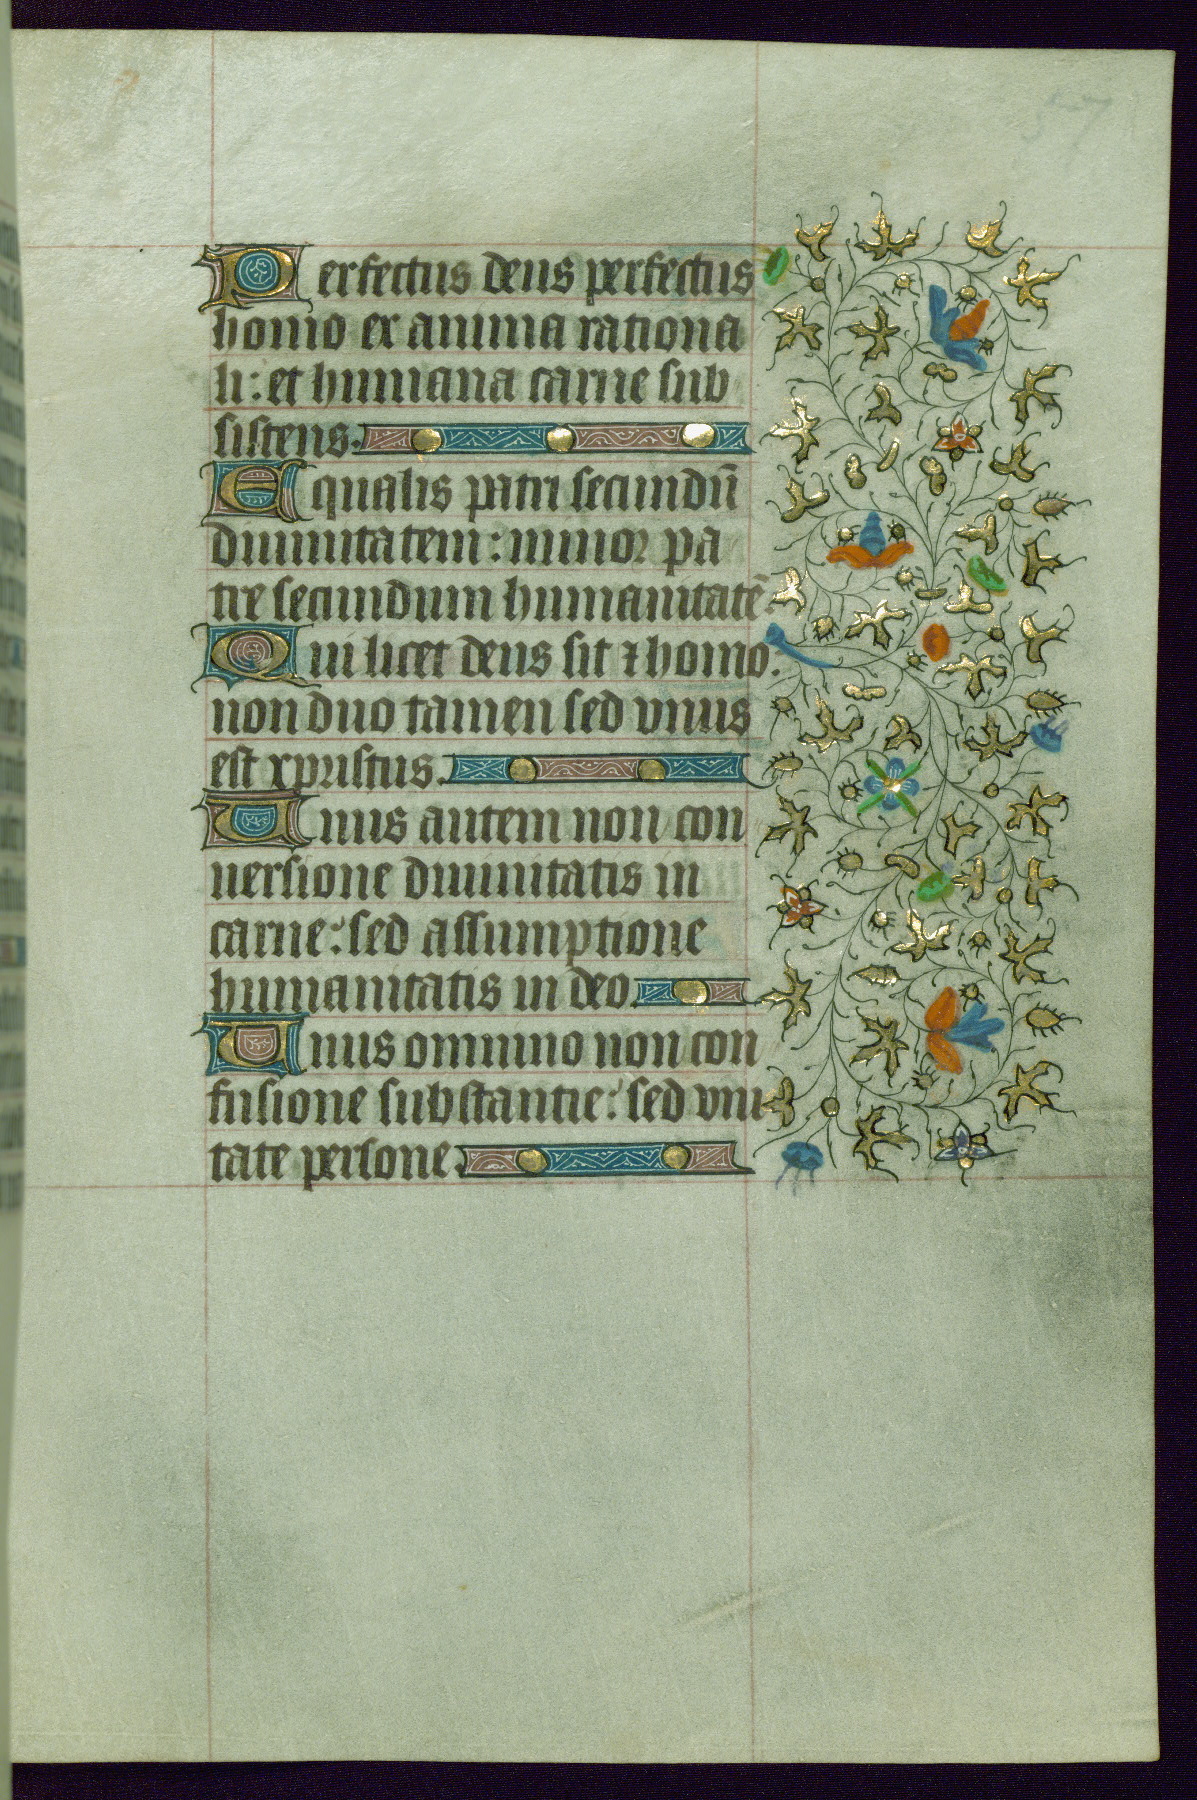 57
Perfectus deus perfectus
homo ex anima rationa
li: et humana carne sub
sistens.
Equalis patri secundū
diuinitatem: minor pa
tre secundum humanitatē.
Qui licet deus sit ⁊ homo.
non duo tamen sed vnus
est xpristus.
Unus autem non con
uersione diuinitatis in
carne: sed assumptione
humanitatis in deo.
Unus omnino non con
fusione substantie: sed vni
tate persone.